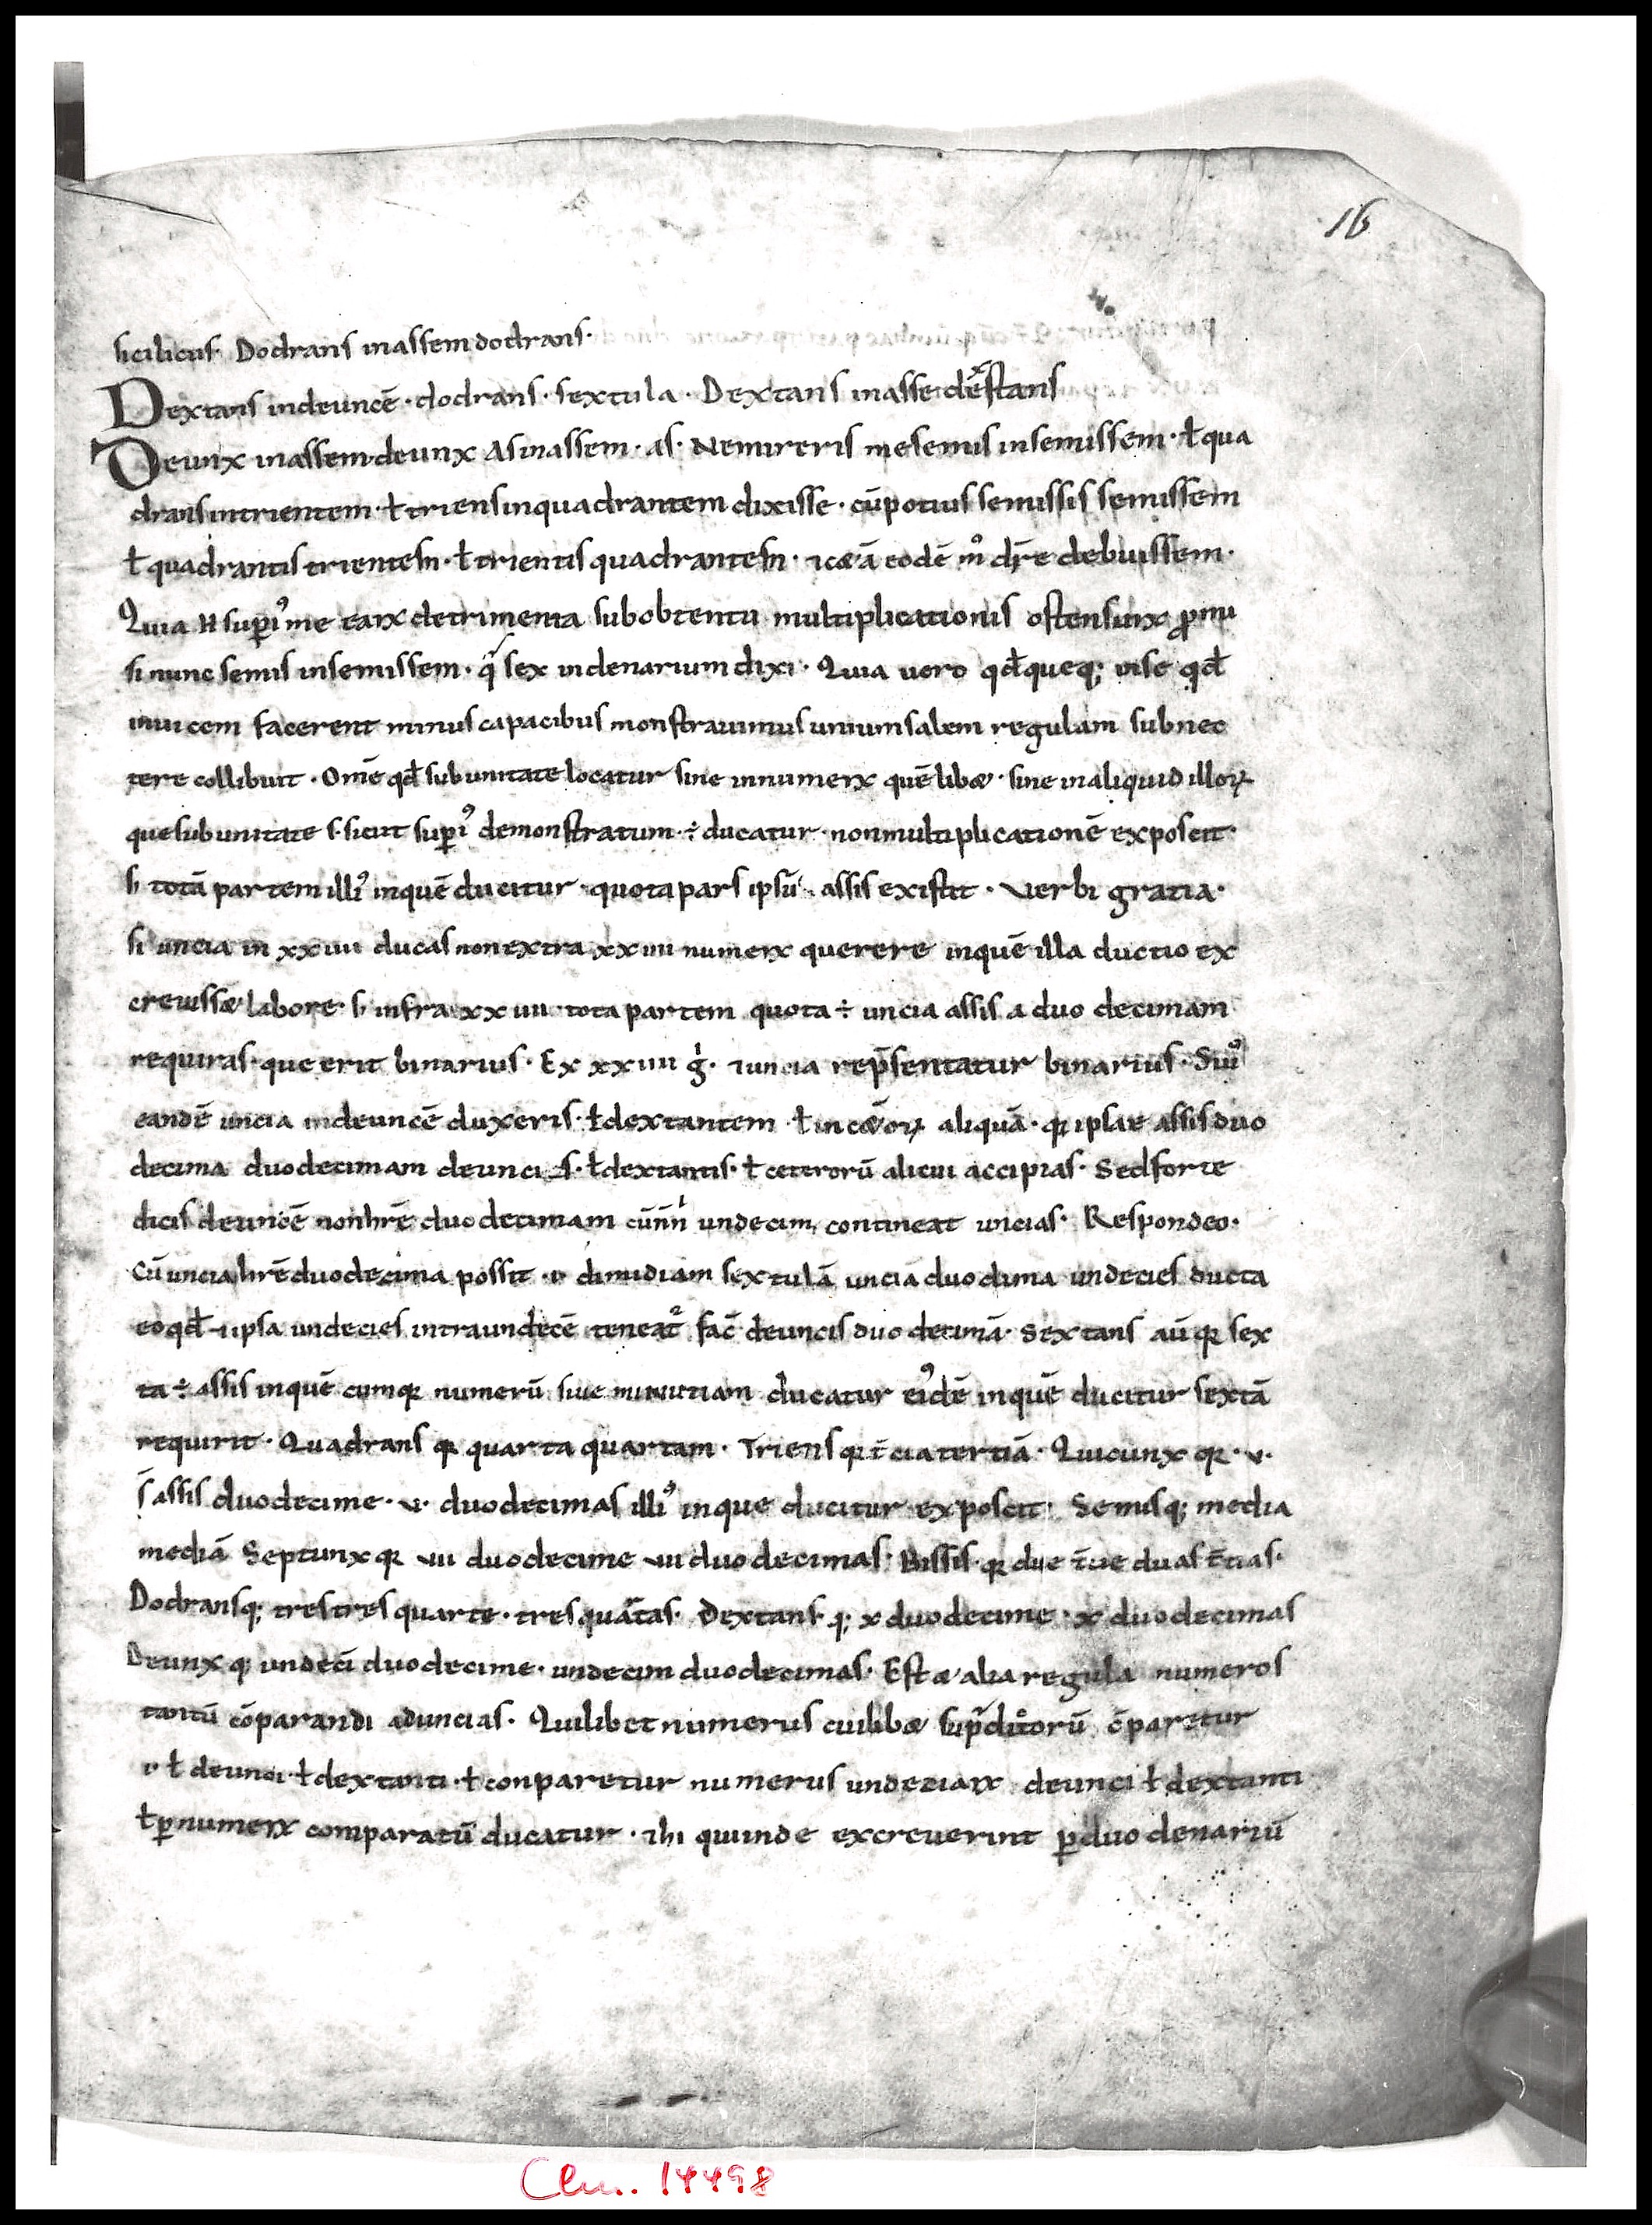 16
sicilicus. Dodrans inassem dodrans.
Dextans indeuncē. dodrans. sextula. Dextans inasse dexstans
Deunx inassem deunx As inassem. as. Nemireris mesemis insemissem. ł qua
drans intrientem. ł triens inquadrantem dixisse. cū potius semissis semissem
ł quadrantis trientem. ł trientis quadrantem. eodē m̊ dr̄e debuissem.
Quia ñ supi᷒ me earx detrimenta sub obtentu multiplicationis ostensurx
si nunc semis insemissem. sex indenarium dixi. Quia uero qd̄ queq; in se qd̄
inuicem facerent minus capacibus monstrauimus uniuersalem regulam subnec
tere collibuit. Omē qd̄ sub unitate locatur siue innumerx quē libæ. siue in aliquid illoꝝ
que sub unitate s. sicut supi᷒ demonstratum. ÷ ducatur. non multiplicationē exposcit.
totā partem illi᷒ inquē ducitur. quota pars ipsū assis existit. Verbi gratia.
si uncia in xxiiii ducas non extra xxiiii numerx querere inquē illa ductio ex
creuissæ labore. infra xxiiii tota partem quota ÷ uncia assis a duo decimam
requiras. que erit binarius. Ex xxiiii g̍. uncia rep̄sentatur binarius. Siu᷒
eandē uncia indeuncē duxeris. ł dextantem ł in cǣoꝝ aliquā. qꝛ ipsa e assis duo
decima duodecimam deunci s. ł dextantis. ł ceterorū alicui accipias. Sed forte
dicis deuncē non hr̄e duodecimam cū undecim contineat uncias. Respondeo.
Cū uncia hr̄e duodecima possit. dimidiam sextulā unciā duodima undecies ducta
eo qd̄ ipsa undecies intra undecē teneat fac̄ deuncis duodecimā. Sextans aū qꝛ sex
ta ÷ assis inquē cumqꝛ numerū siue minutiam ducatur ei᷒dē inquē ducitur sextā
requirit. Quadrans qꝛ quarta quartam. Triens qꝛ t̄cia tertiā. Quicunx qꝛ. v.
s̄ assis duodecime. v. duodecimas illi᷒ inque ducitur exposcit. Semisq; media
mediā Septunx qꝛ vii duodecime vii duodecimas. Bissis. qꝛ due t̄cie duas t̄cias.
Dodransq; tres tres quarte. tres quātas. Dextans. q; x duodecime. x duodecimas
Deunx q; undeci duodecime. undecim duodecimas. Est æ alia regula numeros
tantū cōparandi aduncias. Quilibet numerus cuilibæ sup̄dictorū c̄paretur
ł deunci. ł dextanti. ł conparetur numerus undeciarx deunci ł dextanti
ł ꝑ numerx comparatū ducatur. hi qui inde excreuerint ꝑ duodenariū
Clm. 14498